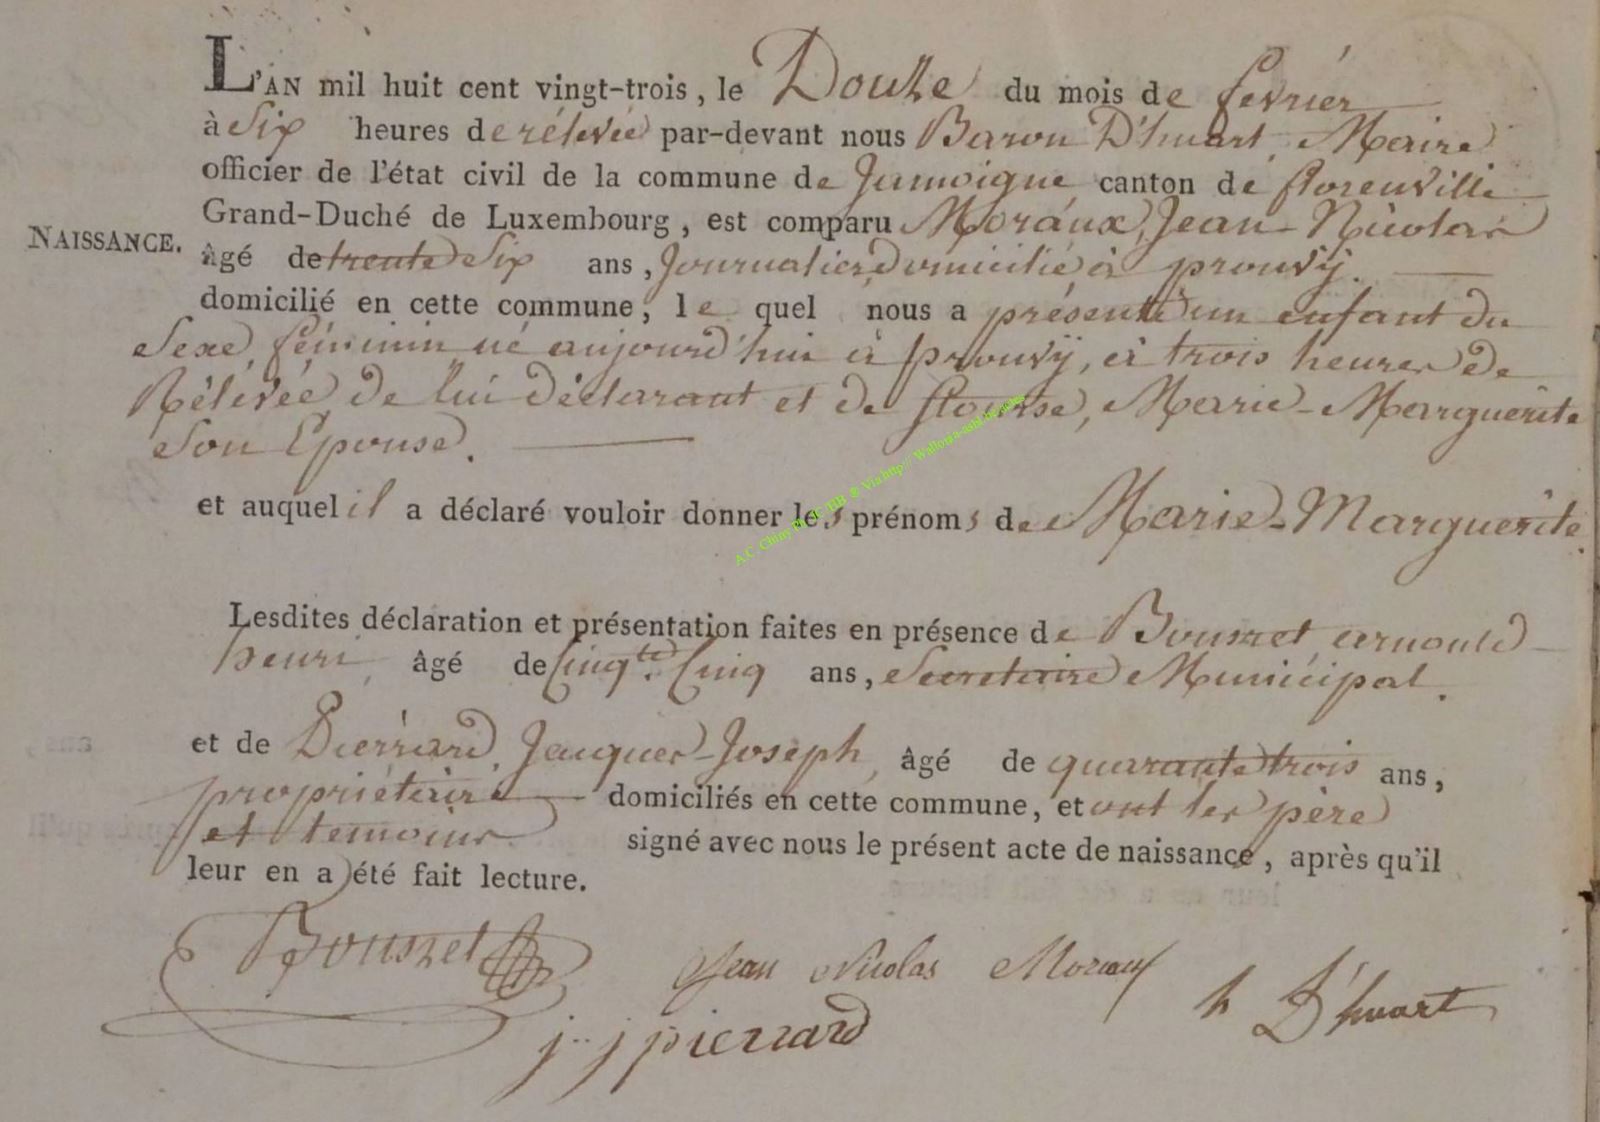 L'AN mil huit cent vingt-trois, le Douze du mois de février
à Six heures de rélevée par-devant nous Baron D'huart, Maire
officier de l'état civil de la commune de Jamoigne canton de florenville
Grand-Duché de Luxembourg, est comparu Moraux, Jean-Nicolas
NAISSANCE.
âgé de trente Six ans, Journalier, Domicilié à prouvÿ.
domicilié en cette commune, le quel nous a présenté un enfant du
Sexe féminin né aujourd'hui à prouvÿ, à trois heures de
Rélevée de lui déclarant et de flourse, Marie-Marguerite
Son Epouse.
et auquel il a déclaré vouloir donner les prénoms de Marie-Marguerite.
Lesdites déclaration et présentation faites en présence de Bouszet, arnould
henri, âgé de Cinqte. Cinq ans, Secretaire Municipal.
et de Pierrard, Jacques-Joseph, âgé de quarante trois ans,
propriétaire domiciliés en cette commune, et ont les père
et temoins signé avec nous le présent acte de naissance, après qu'il
leur en a été fait lecture.
Bouszet
Jean Nicolas Moraux
h D'huart
j.. j pierrard